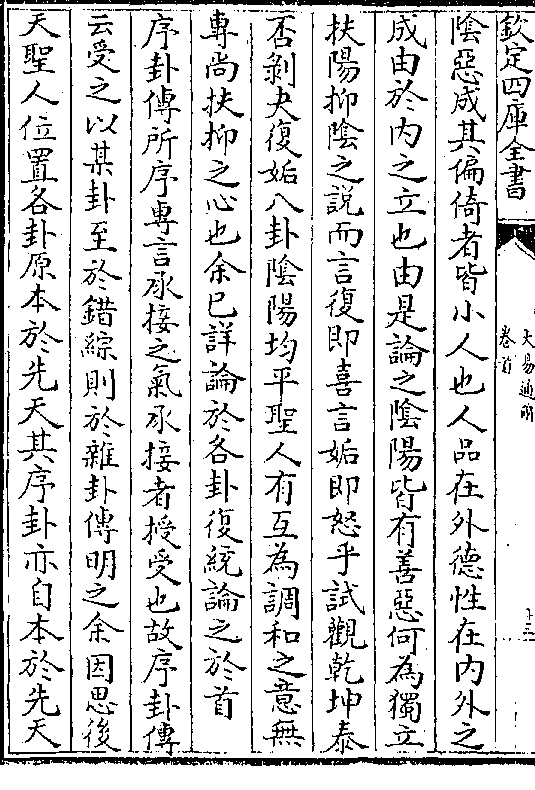 欽定四庫全書
大易通解
卷首
十三
陰惡成其偏倚者皆小人也人品在外德性在内外之
成由於内之立也由是論之陰陽皆有善惡何為獨立
扶陽抑陰之說而言復即喜言姤即怒乎試觀乾坤泰
否剝夬復姤八卦陰陽均平聖人有互為調和之意無
專尚扶抑之心也余已詳論於各卦復統論之於首
序卦傳所序專言承接之氣承接者授受也故序卦傳
云受之以某卦至於錯綜則於雜卦傳明之余因思後
天聖人位置各卦原本於先天其序卦亦自本於先天